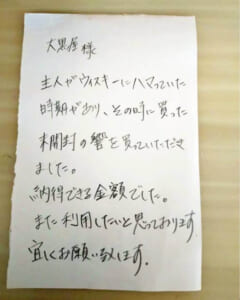 大黒屋様
主人がウィスキーにハマっていた
時期があり、その時に買った
未開封の響を買っていただき
ました。
納得できる金額でした。
また利用したいと思っております。
宜しくお願い致します。